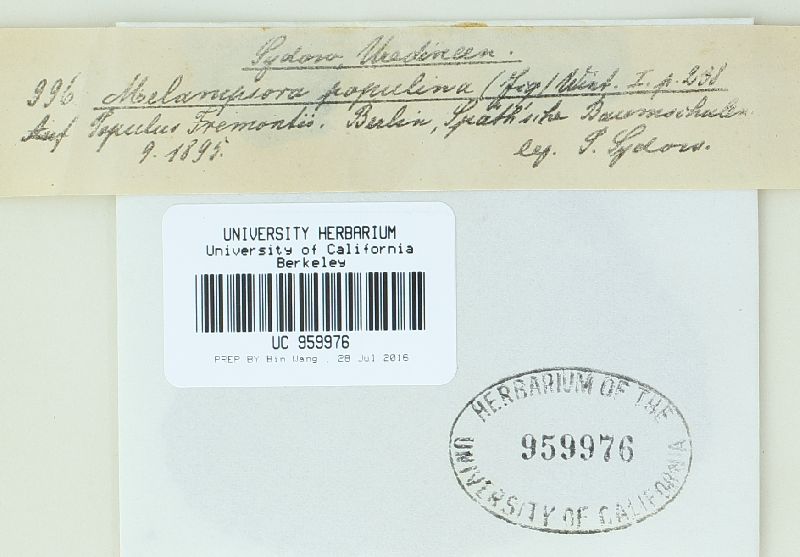 Sydow, Uredineen.
996 Melampsora populina (Jcq) Wint. I. p. 238
Auf Populus Fremontii. Berlin, Späth'sche Baumschulen.
9. 1895. leg. P. Sydow.
UNIVERSITY HERBARIUM
University of California
Berkeley
UC 959976
PREP BY Bin Wang , 28 Jul 2016
HERBARIUM OF THE
959976
UNIVERSITY OF CALIFORNIA